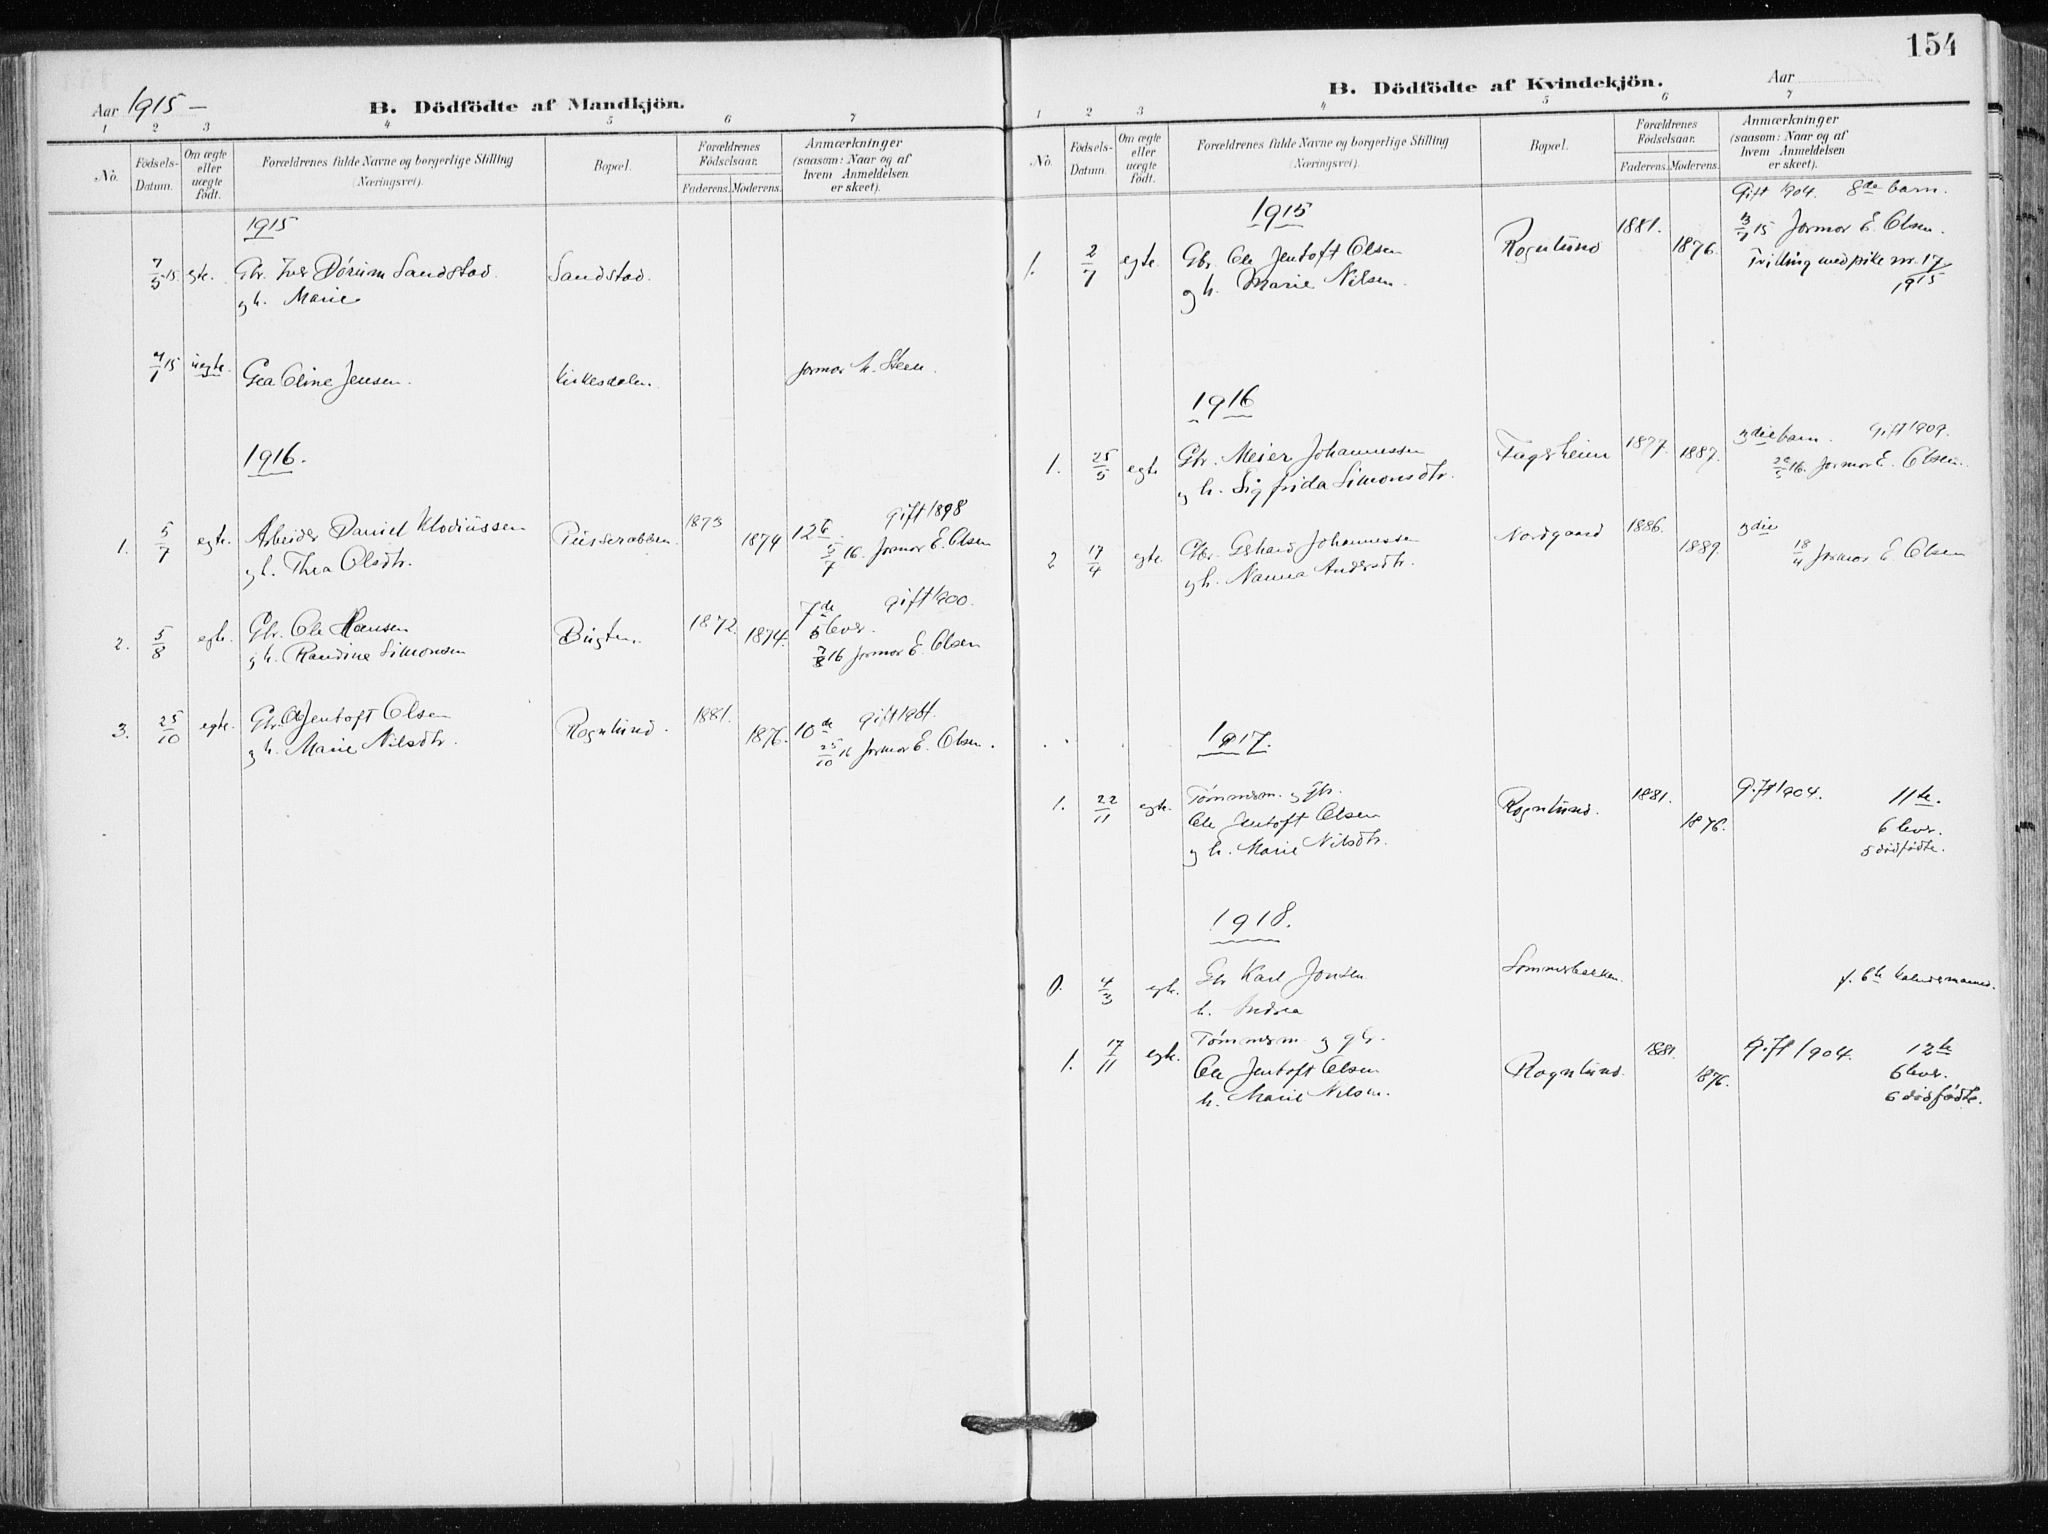 Aar 1915 –
B. Dödfödte af Mandkjön.
1 2 3 4 5 6 7
No.
Födsels-Datum.
Om ægte eller uægte födt.
Forældrenes fulde Navne og borgerlige Stilling (Næringsvei).
Bopæl.
Forældrenes Födselsaar.
Faderens. Moderens.
Anmærkninger (saasom: Naar og af hvem Anmeldelsen er skeet).
1915
7/5 15. egte. Gbr. Iver Dörum Sandstad Sandstad.
og h. Marie
4/7 15 uegte. Gea Oline Jensen. Kirkesdalen. Jormor M. Steen.
1916.
gift 1898
1. 5/7 egte. Arbeider Daniel Klodiussen 1873 1874 12te.
og h. Thea Olsdtr. 5/7 16. Jormor E. Olsen
7de gift 1900.
2. 5/8 egte. Gbr. Ole Hansen Bugten. 1872. 1874. 5 lever.
og h. Randine Simonsen 7/8 16 Jormor E. Olsen
3. 25/10 egte. Gbr. Ole Jentoft Olsen Rognlund. 1881. 1876. 10de gift 1904.
og h. Marie Nilsdtr. 25/10 16 Jormor E. Olsen.
154
B. Dödfödte af Kvindekjön.
Aar
1 2 3 4 5 6 7
No.
Födsels-Datum.
Om ægte eller uægte födt.
Forældrenes fulde Navne og borgerlige Stilling (Næringsvei).
Bopæl.
Forældrenes Födselsaar.
Faderens. Moderens.
Anmærkninger (saasom: Naar og af hvem Anmeldelsen er skeet).
1915
Gift 1904. 8de barn.
1. 2/7 egte. Gbr. Ole Jentoft Olsen Rognlund 1881. 1876. 3/7 15 Jormor E. Olsen.
og h. Marie Nilsen. Tvilling med pike nr. 17/1915
1916
1. 25/5 egte Gbr. Meier Johannessen Fagerheim 1877. 1887. 3die barn. Gift 1909.
og h. Sigfrida Simonsdtr. 16. Jormor E. Olsen.
2 17/4 egte. Gbr. Gerhard Johannessen Nordgaard 1886. 1889. 3die
og h. Nanna Andersdtr. 18/4 Jormor E Olsen
1917.
1. 22/11 egte. Tømmerm. og gbr. Rognlund. 1881. 1876. Gift 1904. 11te.
Ole Jentoft Olsen 6 lever.
og h. Marie Nilsdtr. 5 dödfödte.
1918.
0. 4/3 egte. Gbr Karl Jensen Sommerbakken. f. 6te kalendermaaned.
h. Andrea
1. 17/11 egte. Tømmerm. og gbr. 1881. 1876. Gift 1904. 12te
Ole Jentoft Olsen Rognlund. 6 lever.
h. Marie Nilsen. 6 dödfödte.